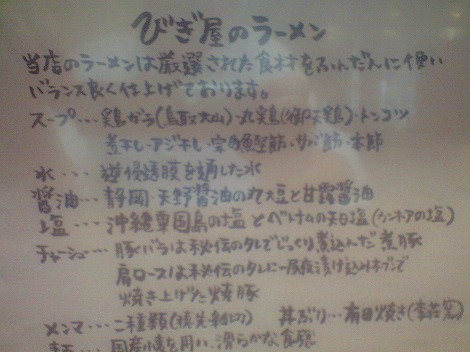 びぎ屋のラーメン
当店のラーメンは厳選された食材をふんだんに使い
バランス良く仕上げております。
スープ…鶏ガラ(鳥取大山)・丸鶏()・トンコツ
煮干し・アジ干し・宗田鰹節・サバ節・本節
水…逆浸透膜を通した水
醤油…静岡・天野醤油の丸大豆と甘露醤油
塩…沖縄粟国島の塩とベトナムの天日塩(カンホアの塩)
チャーシュー…豚バラは秘伝のタレでじっくり煮込んだ煮豚
肩ロースは秘伝のタレに一昼夜漬け込みオーブンで
焼き上げた焼豚
メンマ…二種類(穂先・細切) 丼ぶり…有田焼き(李荘窯)
国産小麦を用い、滑らかな食感